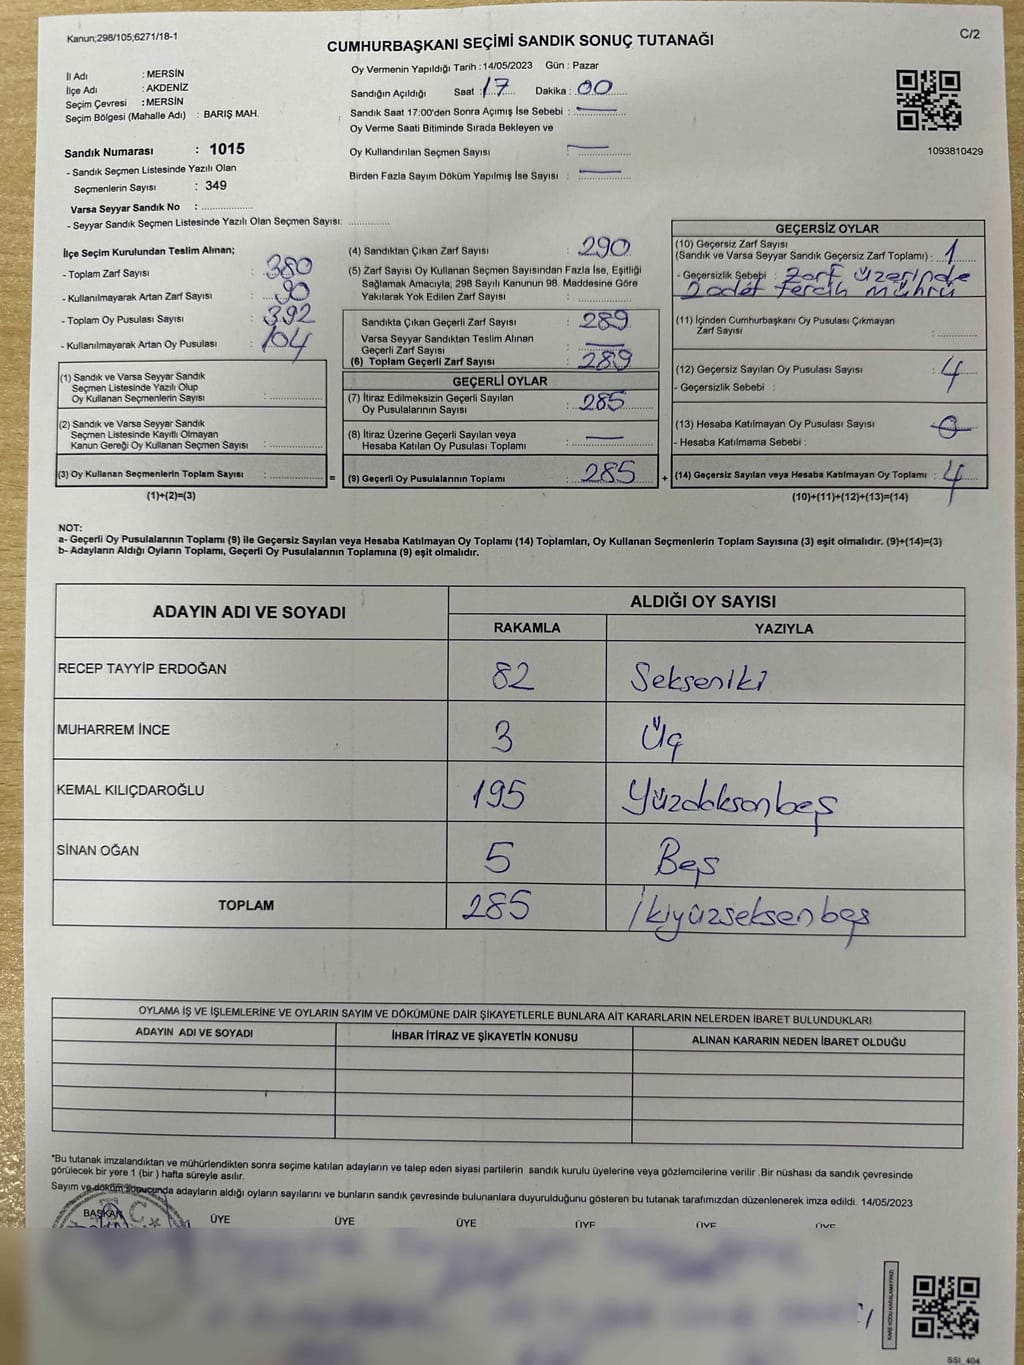 Kanun;298/105;6271/18-1
C/2
CUMHURBAŞKANI SEÇİMİ SANDIK SONUÇ TUTANAĞI
İl Adı : MERSİN
İlçe Adı : AKDENİZ
Seçim Çevresi : MERSİN
Seçim Bölgesi (Mahalle Adı) : BARIŞ MAH.
Sandık Numarası : 1015
- Sandık Seçmen Listesinde Yazılı Olan
Seçmenlerin Sayısı : 349
Varsa Seyyar Sandık No :
- Seyyar Sandık Seçmen Listesinde Yazılı Olan Seçmen Sayısı:
Oy Vermenin Yapıldığı Tarih : 14/05/2023 Gün : Pazar
Sandığın Açıldığı Saat : 17 Dakika : 00
Sandık Saat 17:00'den Sonra Açımış İse Sebebi : —
Oy Verme Saati Bitiminde Sırada Bekleyen ve
Oy Kullandırılan Seçmen Sayısı —
Birden Fazla Sayım Döküm Yapılmış İse Sayısı : —
1093810429
İlçe Seçim Kurulundan Teslim Alınan;
- Toplam Zarf Sayısı : 380
- Kullanılmayarak Artan Zarf Sayısı : 90
- Toplam Oy Pusulası Sayısı : 392
- Kullanılmayarak Artan Oy Pusulası : 104
(1) Sandık ve Varsa Seyyar Sandık
Seçmen Listesinde Yazılı Olup
Oy Kullanan Seçmenlerin Sayısı :
(2) Sandık ve Varsa Seyyar Sandık
Seçmen Listesinde Kayıtlı Olmayan
Kanun Gereği Oy Kullanan Seçmen Sayısı :
(3) Oy Kullanan Seçmenlerin Toplam Sayısı :
(1)+(2)=(3)
=
(4) Sandıktan Çıkan Zarf Sayısı : 290
(5) Zarf Sayısı Oy Kullanan Seçmen Sayısından Fazla İse, Eşitliği
Sağlamak Amacıyla; 298 Sayılı Kanunun 98. Maddesine Göre
Yakılarak Yok Edilen Zarf Sayısı :
Sandıkta Çıkan Geçerli Zarf Sayısı : 289
Varsa Seyyar Sandıktan Teslim Alınan
Geçerli Zarf Sayısı : —
(6) Toplam Geçerli Zarf Sayısı : 289
GEÇERLİ OYLAR
(7) İtiraz Edilmeksizin Geçerli Sayılan
Oy Pusulalarının Sayısı : 285
(8) İtiraz Üzerine Geçerli Sayılan veya
Hesaba Katılan Oy Pusulası Toplamı : —
(9) Geçerli Oy Pusulalarının Toplamı : 285
+
GEÇERSİZ OYLAR
(10) Geçersiz Zarf Sayısı
(Sandık ve Varsa Seyyar Sandık Geçersiz Zarf Toplamı) : 1
- Geçersizlik Sebebi : Zarf üzerinde
2 adet tercih mührü
(11) İçinden Cumhurbaşkanı Oy Pusulası Çıkmayan
Zarf Sayısı :
(12) Geçersiz Sayılan Oy Pusulası Sayısı : 4
- Geçersizlik Sebebi :
(13) Hesaba Katılmayan Oy Pusulası Sayısı : 0
- Hesaba Katılmama Sebebi :
(14) Geçersiz Sayılan veya Hesaba Katılmayan Oy Toplamı : 4
(10)+(11)+(12)+(13)=(14)
NOT:
a- Geçerli Oy Pusulalarının Toplamı (9) ile Geçersiz Sayılan veya Hesaba Katılmayan Oy Toplamı (14) Toplamları, Oy Kullanan Seçmenlerin Toplam Sayısına (3) eşit olmalıdır. (9)+(14)=(3)
b- Adayların Aldığı Oyların Toplamı, Geçerli Oy Pusulalarının Toplamına (9) eşit olmalıdır.
ADAYIN ADI VE SOYADI ALDIĞI OY SAYISI
RAKAMLA YAZIYLA
RECEP TAYYİP ERDOĞAN 82 Sekseniki
MUHARREM İNCE 3 Üç
KEMAL KILIÇDAROĞLU 195 Yüzdoksanbeş
SİNAN OĞAN 5 Beş
TOPLAM 285 İkiyüzseksenbeş
OYLAMA İŞ VE İŞLEMLERİNE VE OYLARIN SAYIM VE DÖKÜMÜNE DAİR ŞİKAYETLERLE BUNLARA AİT KARARLARIN NELERDEN İBARET BULUNDUKLARI
ADAYIN ADI VE SOYADI İHBAR İTİRAZ VE ŞİKAYETİN KONUSU ALINAN KARARIN NEDEN İBARET OLDUĞU
*Bu tutanak imzalandıktan ve mühürlendikten sonra seçime katılan adayların ve talep eden siyasi partilerin sandık kurulu üyelerine veya gözlemcilerine verilir .Bir nüshası da sandık çevresinde
görülecek bir yere 1 (bir ) hafta süreyle asılır.
Sayım ve döküm sonucunda adayların aldığı oyların sayılarını ve bunların sandık çevresinde bulunanlara duyurulduğunu gösteren bu tutanak tarafımızdan düzenlenerek imza edildi. 14/05/2023
BAŞKAN ÜYE ÜYE ÜYE ÜYE ÜYE ÜYE
T.C.
SSI_404